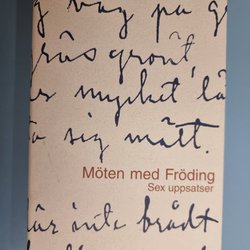 väg på g
gräs grönt,
er mycket lå
a sig mätt.
Möten med Fröding
Sex uppsatser
är inte brådt